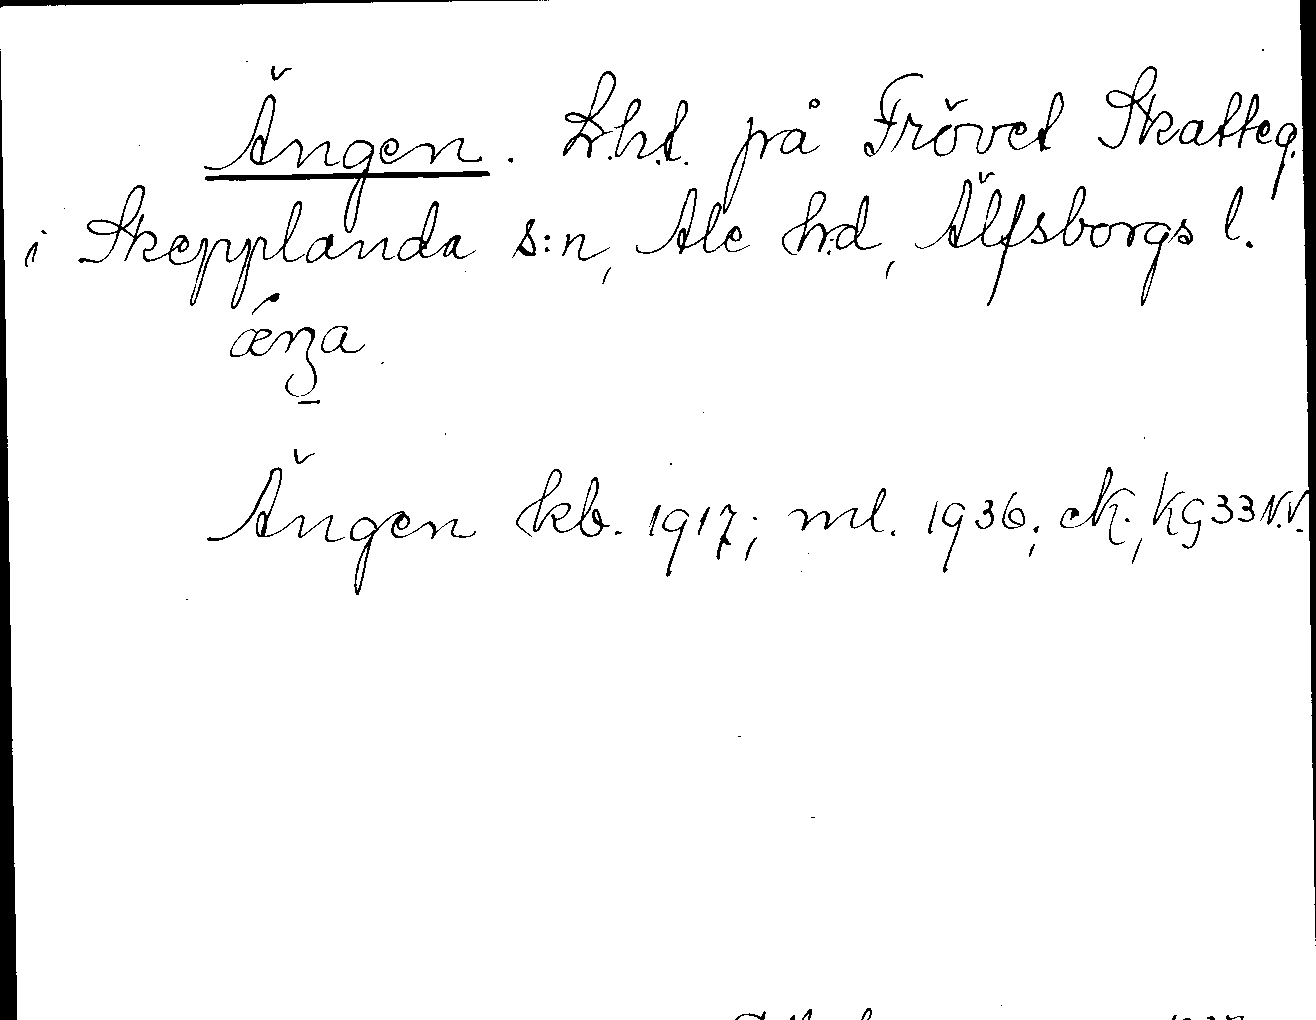 Ängen. Lht. på Frövet Skatteg.
i Skepplanda s:n, Ale hd, Älfsborgs l.
Ängen kb. 1917; ml. 1936; ek., KG33N.V.